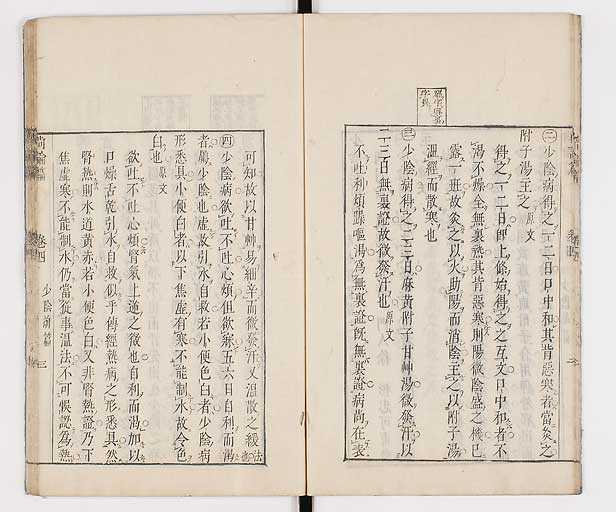 ㊁少陰病得之一二日口中和其背惡寒者當灸之
附子湯主之 原文
得之一二日即上條始得之之互文口中和者不
渴不燥全無裏熱其背惡寒則陽微陰盛之機已
露一班故灸之以火助陽而消陰主之以附子湯
溫經而散寒也
㊂少陰病得之二三日麻黃附子甘艸湯微發汗以
二三日無裏證故微發汗也 原文
不吐利煩躁嘔渴為無裏證既無裏證病尚在表
可知故以甘艸易細辛而微發汗又溫散之緩法也
㊃少陰病欲吐不吐心煩但欲寐五六日自利而渴
者屬少陰也虛故引水自救若小便色白者少陰病
形悉具小便白者以下焦虛有寒不能制水故令色
白也 原文
欲吐不吐心煩腎氣上逆之徵也自利而渴加以
口燥舌乾引水自救似乎傳經熱病之形悉具然
腎熱則水道黃赤若小便色白又非腎熱證乃下
焦虛寒不能制水仍當從事溫法不可悞認為熱
尚論篇 卷四 少陰前篇 三